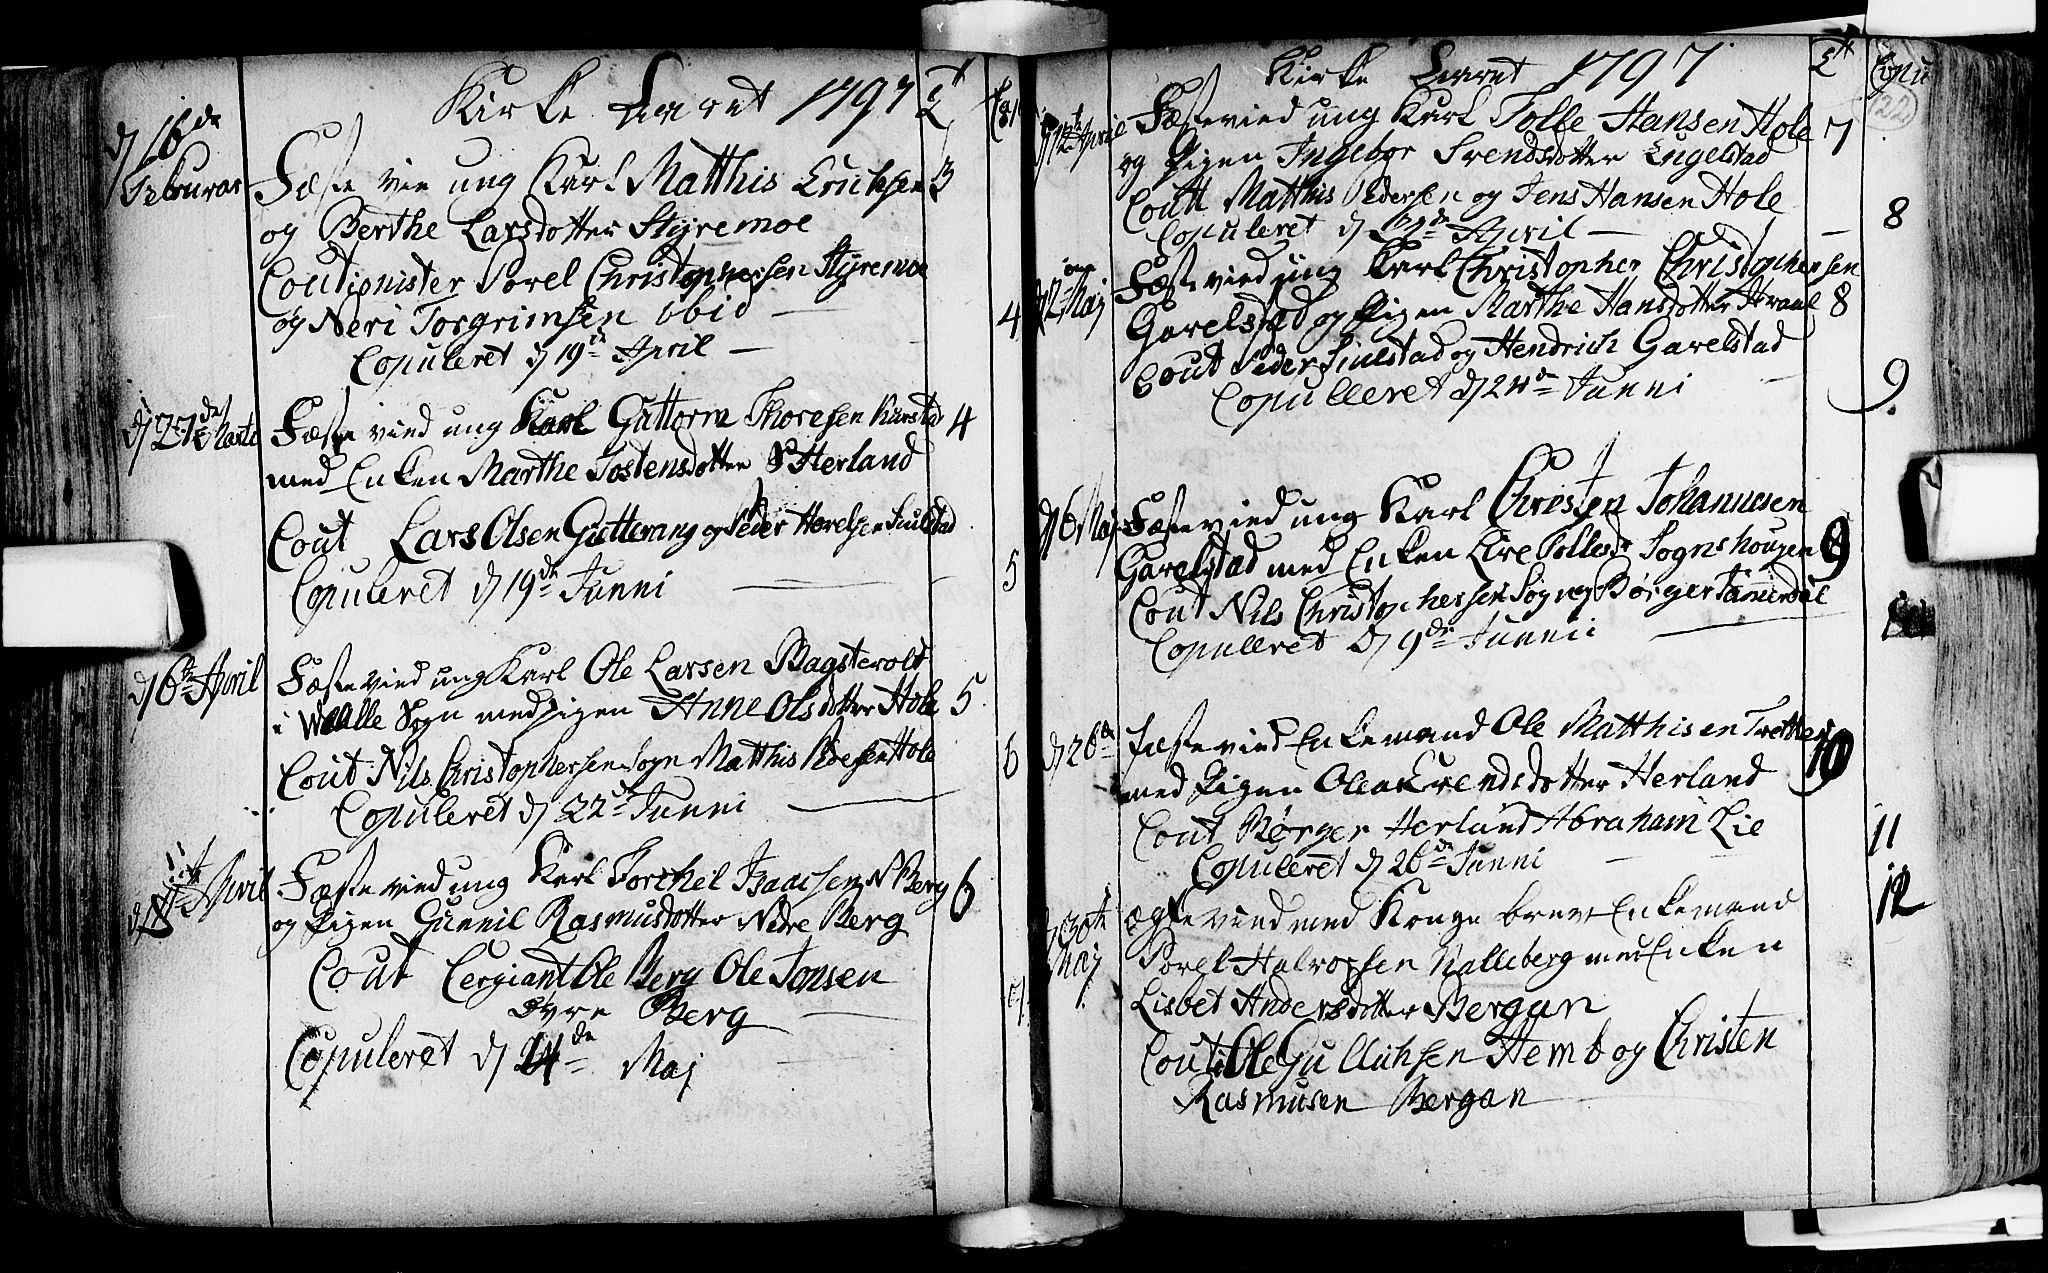 Kirke Aaret 1797
d 16de Februar
Fæste vie ung Karl Matthis Erichsen 3
og Berthe Larsdotter Styremoe
Coutionister Porel Christophersen Styremoe
og Neri Torgrimsen Obid
Copuleret d 19de April — 4
d 27de Marti
Fæste vied ung Karl Guttorm Thoresen Karstad 4
med Enken Marthe Tostensdotter S Herland
Cout Lars Olsen Gutterang og Peder Hovelsen Fiulstad
Copuleret d 19de Junni — 5
d 6te April
Fæste vied ung Karl Ole Larsen Bagstevolt
i Walle Sogn med pigen Anne Olsdotter Hole 5
Cout Nils Christophersen Sogn Matthis Pedersen Hole
Copuleret d 22de Junni — 6
d 11te April
Fæste vied ung Karl Torchel Isaachsen N Berg 6
og Pigen Gunnil Rasmusdotter Nedre Berg
Cout Cergiant Ole Berg Ole Jonsen
øvre Berg
Copuleret d 24de Maj — 7
Kirke Aaret 1797
Copu
122
d 12te April
Fæste vied ung Karl Tolle Hansen Hole 7
og Pigen Ingebor Svendsdotter Engelstad
Cout Matthis Pedersen og Jens Hansen Hole
Copuleret d 29de April — 8
d 2den Maj
Fæste vied ung Karl Christopher Christophersen
Garelstad og Pigen Marthe Hansdotter Hvaal 8
Cout Peder Fiulstad og Hendrich Garelstad
Copulleret d 24de Junni — 9
d 16 Maj
Fæste vied ung Karl Christen Johannesen
Garelstad med Enken Live Tollesd Sognshougen 9
Cout Nils Christophersen Sogn og Børger Tamerdal
Copulleret d 9de Junni
d 26de
Fæste vied Enkemand Ole Matthisen Trotter 10
med Pigen Olea Evendsdotter Herland
Cout Børger Herland Abraham Lie
Copuleret d 26de Junni — 11
d 30te Maj
Ægte vied med Konge brev Enkemand 12
Porel Halvorsen Kalleberg med Enken
Lisbet Andersdotter Bergan
Couti Ole Gullichsen Hemb og Christen
Rasmusen Bergan